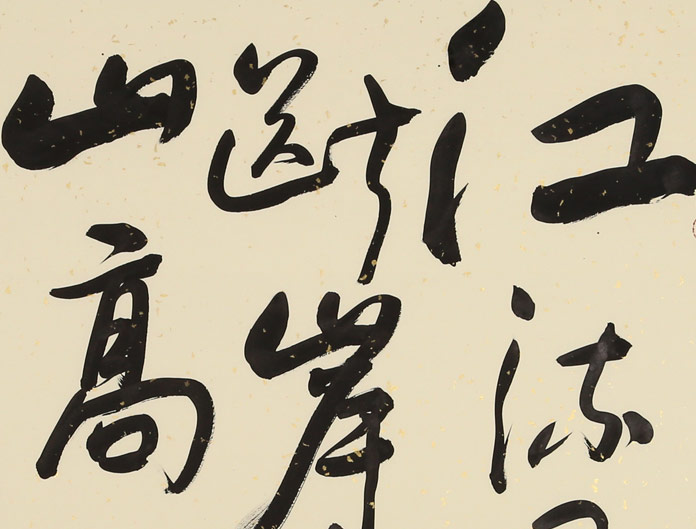 江流
断岸
山高